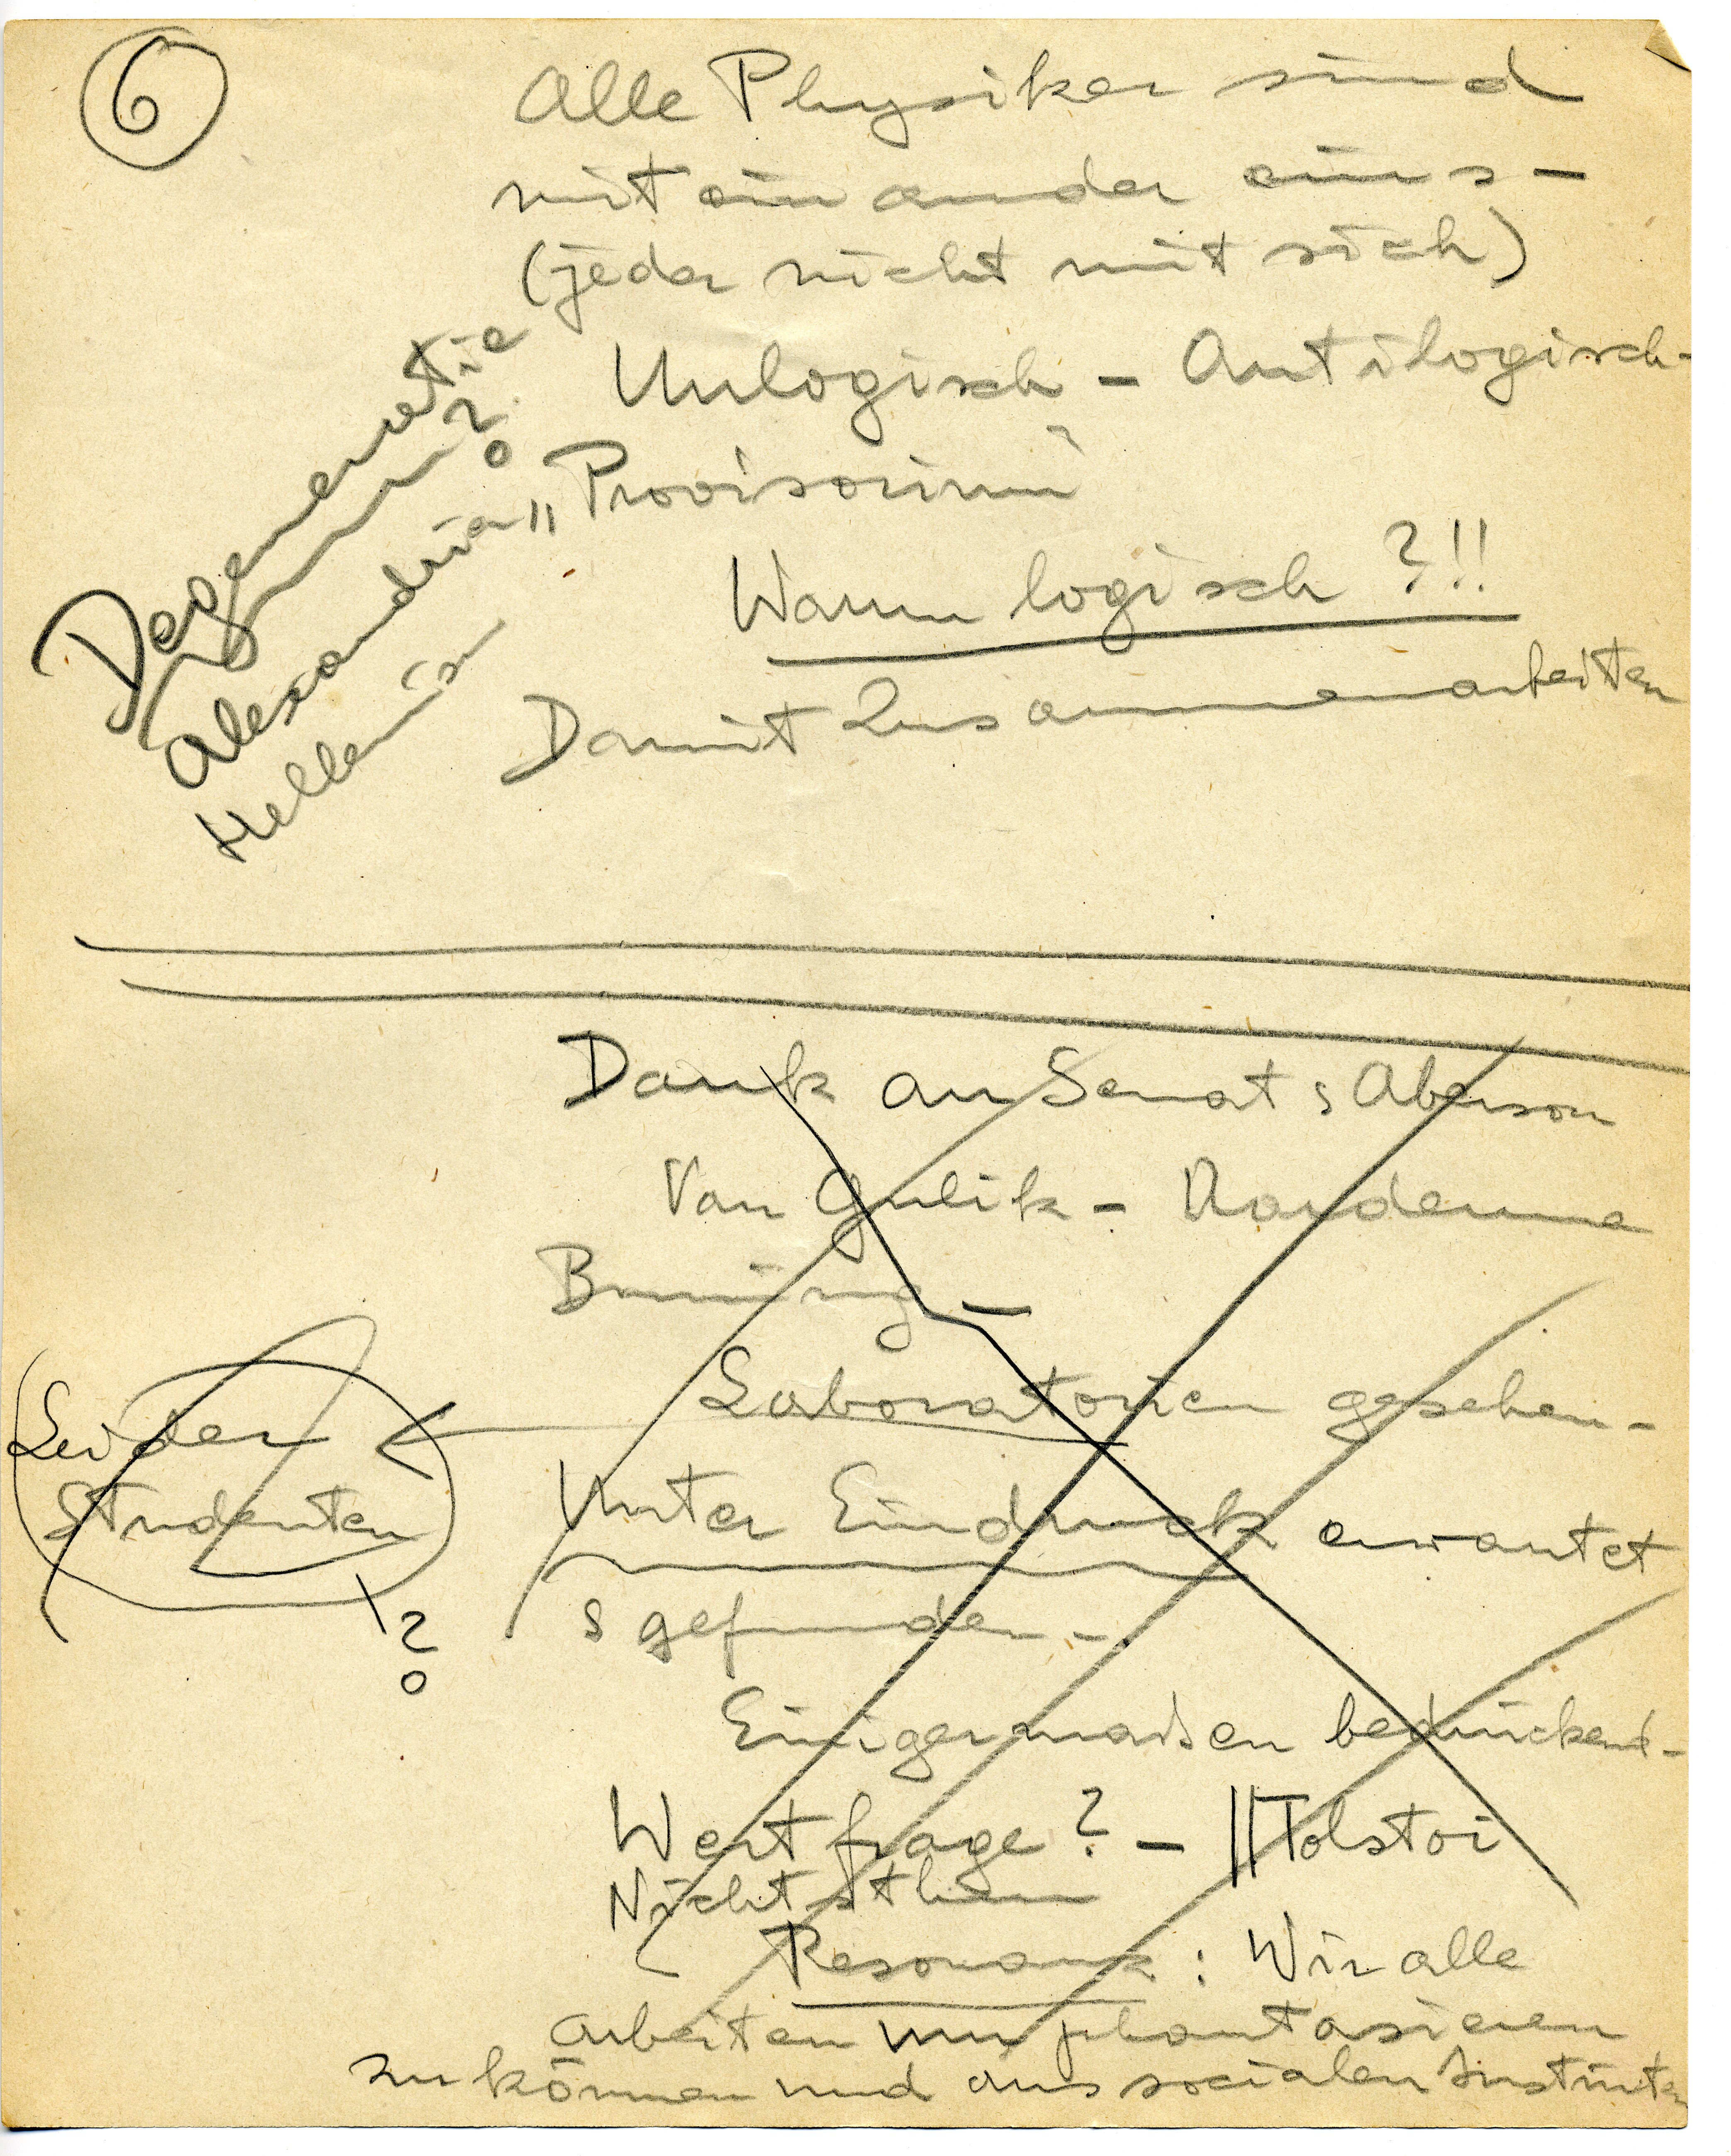 6
Alle Physiker sind
mit einander eins –
(jeder nicht mit sich)
Unlogisch – Antilogisch –
„Provisorium“
Warum logisch ?!!
Damit Zusammenarbeiten
Degenerestie
?
Alexandria
Hellenism
Dank an Senat & Aberson
Van Gulik –
Bruning –
Laboratorien gesehen –
Leider
Studenten
?
Unter Eindruck erwartet
& gefunden –
Einigermassen bedrückend –
Wertfrage? – || Tolstoi
Nichtsthun
Resonanz : Wir alle
arbeiten um phantasieren
zu können und aus socialen Instinkten